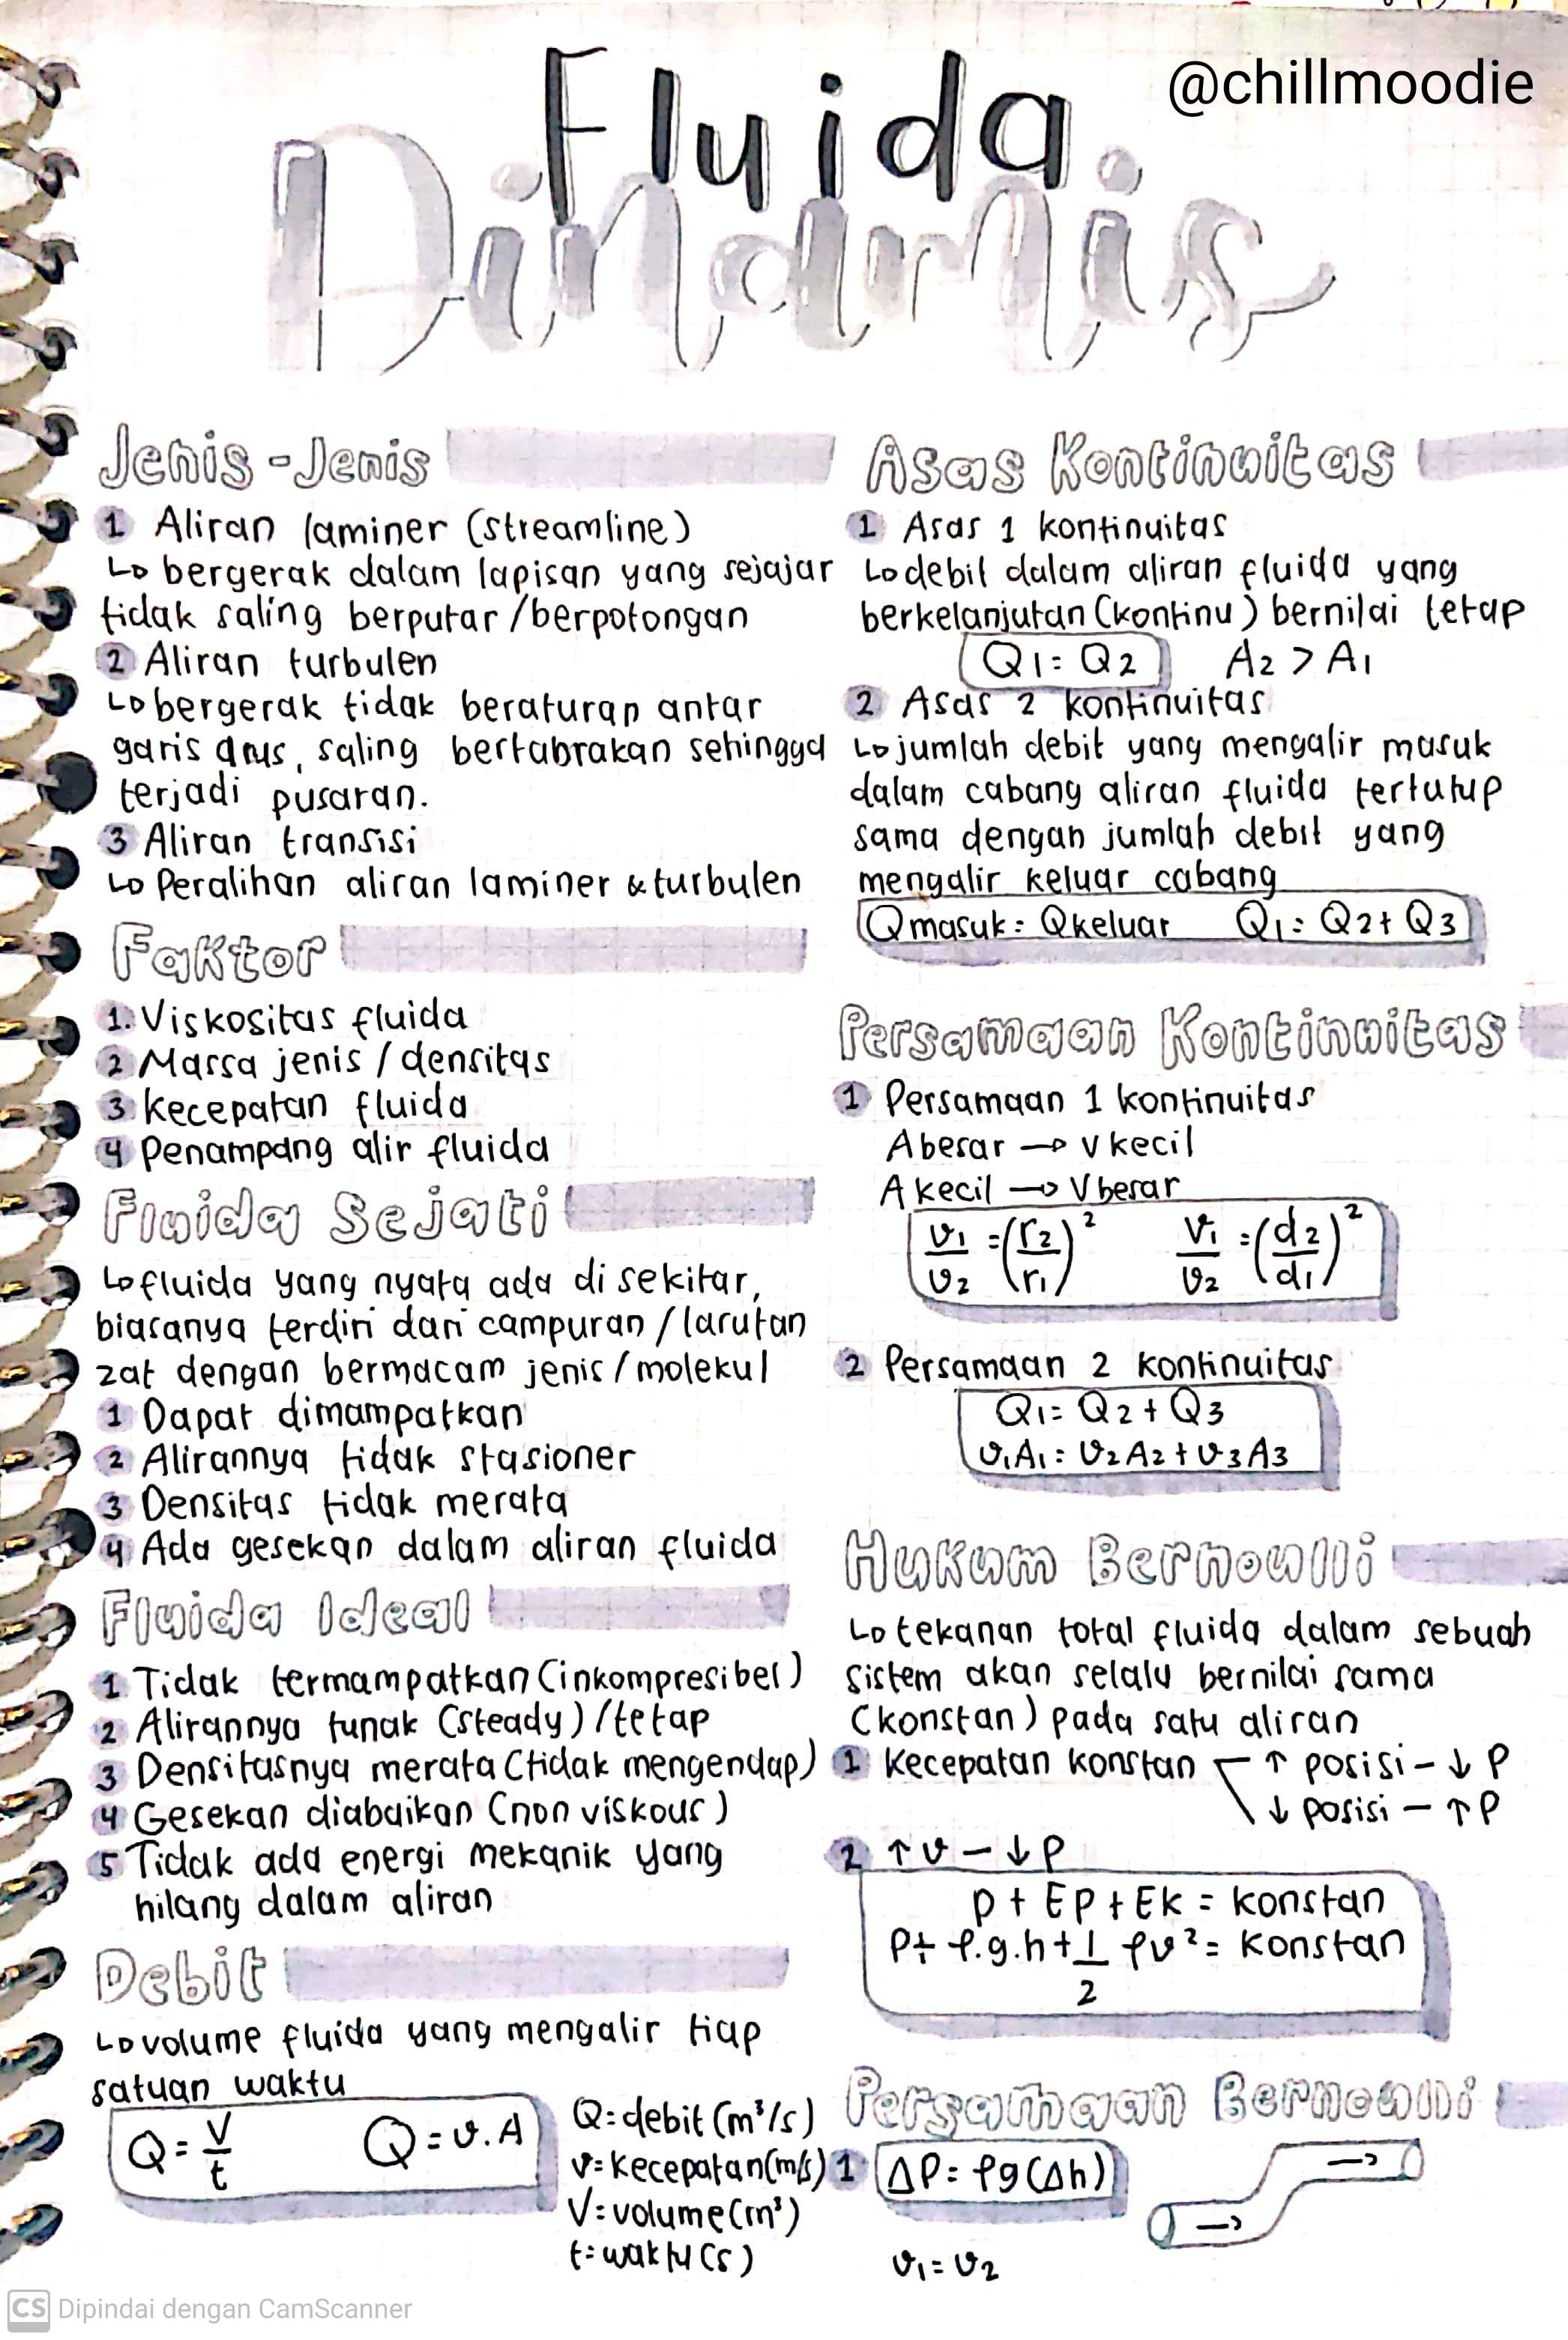 @chillmoodie
Fluida
Dinamis
Jenis - Jenis
1 Aliran laminer (streamline)
↳ bergerak dalam lapisan yang sejajar
tidak saling berputar / berpotongan
2 Aliran turbulen
↳ bergerak tidak beraturan antar
garis arus, saling bertabrakan sehingga
terjadi pusaran.
3 Aliran transisi
↳ Peralihan aliran laminer & turbulen
Faktor
1. Viskositas fluida
2 Massa jenis / densitas
3 kecepatan fluida
4 Penampang alir fluida
Fluida Sejati
↳ fluida yang nyata ada di sekitar,
biasanya terdiri dari campuran / larutan
zat dengan bermacam jenis / molekul
1 Dapat dimampatkan
2 Alirannya tidak stasioner
3 Densitas tidak merata
4 Ada gesekan dalam aliran fluida
Fluida Ideal
1 Tidak termampatkan (inkompresibel)
2 Alirannya tunak (steady) / tetap
3 Densitasnya merata (tidak mengendap)
4 Gesekan diabaikan (non viskous)
5 Tidak ada energi mekanik yang
hilang dalam aliran
Debit
↳ volume fluida yang mengalir tiap
satuan waktu
Q = V/t Q = v . A
Q = debit (m³/s)
v = kecepatan (m/s)
V = volume (m³)
t = waktu (s)
Asas Kontinuitas
1 Asas 1 kontinuitas
↳ debit dalam aliran fluida yang
berkelanjutan (kontinu) bernilai tetap
Q1 = Q2 A2 > A1
2 Asas 2 kontinuitas
↳ jumlah debit yang mengalir masuk
dalam cabang aliran fluida tertutup
sama dengan jumlah debit yang
mengalir keluar cabang
Q masuk = Q keluar Q1 = Q2 + Q3
Persamaan Kontinuitas
1 Persamaan 1 kontinuitas
A besar → v kecil
A kecil → V besar
v1/v2 = (r2/r1)² v1/v2 = (d2/d1)²
2 Persamaan 2 kontinuitas
Q1 = Q2 + Q3
v1A1 = v2A2 + v3A3
Hukum Bernoulli
↳ tekanan total fluida dalam sebuah
sistem akan selalu bernilai sama
(konstan) pada satu aliran
1 Kecepatan konstan ↑ posisi - ↓ P
↓ posisi - ↑ P
2 ↑ v - ↓ P
P + Ep + Ek = konstan
P + ρ.g.h + 1/2 ρv² = konstan
Persamaan Bernoulli
1 ΔP = ρg(Δh)
→
→
v1 = v2
CS Dipindai dengan CamScanner